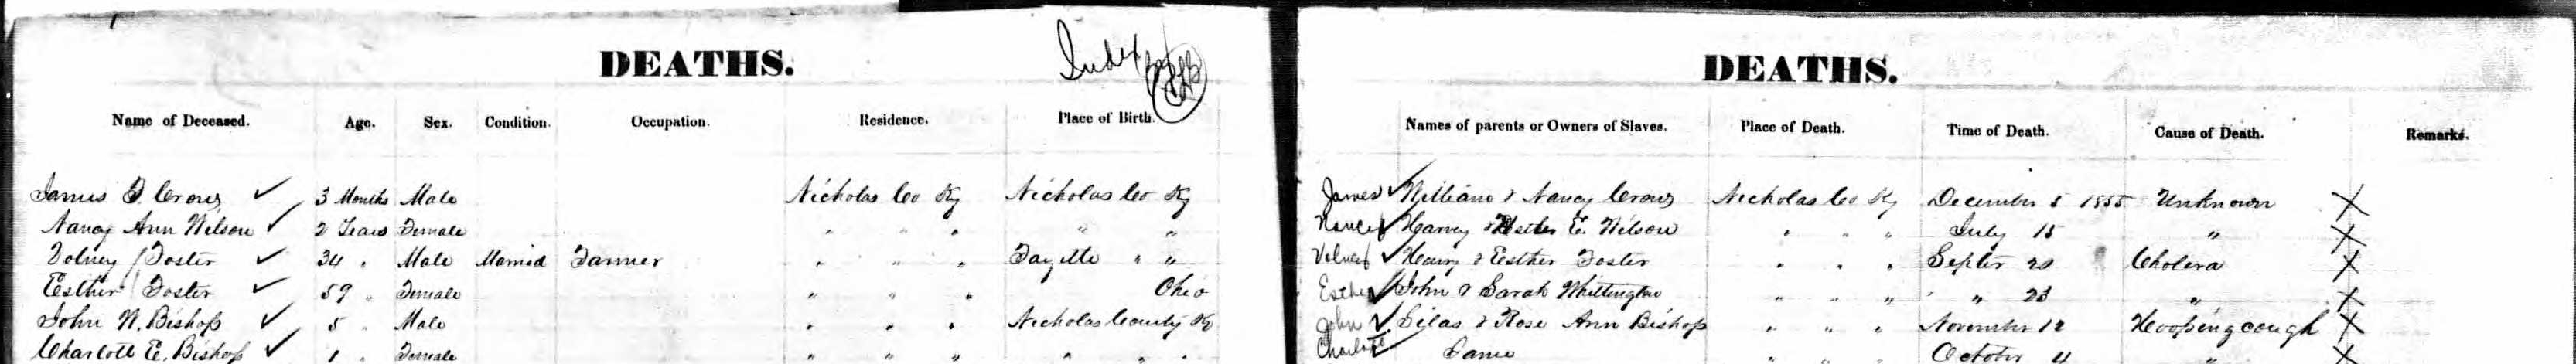 Index
DEATHS. DEATHS.
Name of Deceased. Age. Sex. Condition. Occupation. Residence. Place of Birth. Names of parents or Owners of Slaves. Place of Death. Time of Death. Cause of Death. Remarks.
James Crows ✓ 3 Months Male Nicholas Co Ky Nicholas Co Ky James ✓ William & Nancy Crows Nicholas Co Ky December 5 1855 Unknown X
Nancy Ann Wilson ✓ 2 Years Female " " " " " Nancy ✓ Harvey & Hester E. Wilson " " " July 15 " X
Volney Foster ✓ 34 " Male Married Farmer " " " Fayette " " Volney ✓ Henry & Esther Foster " " " Septer 20 Cholera X
Esther Foster ✓ 59 " Female " " " Ohio Esther ✓ John & Sarah Whittington " " " " 23 " X
John N. Bishop ✓ 5 " Male " " " Nicholas County Ky John ✓ Silas & Rose Ann Bishop " " " November 12 Hooping cough X
Charlott E. Bishop ✓ 1 " Female " " " " " " Charlott ✓ Same " " " October 4 " X